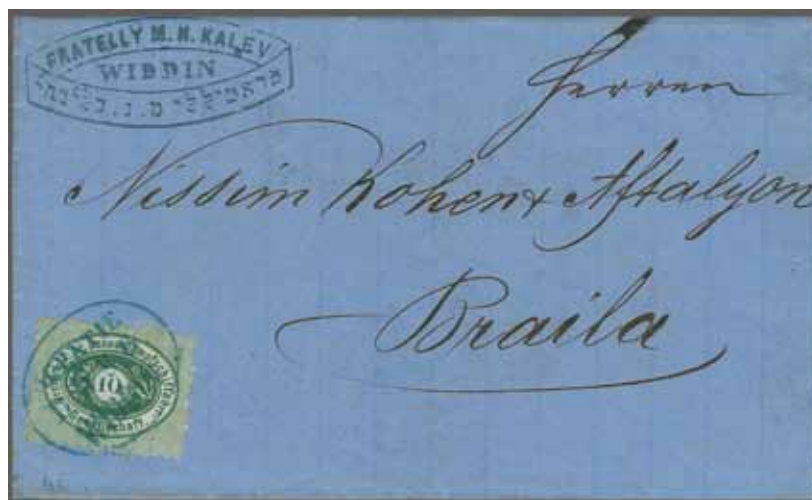 FRATELLY M. N. KALEV
WIDDIN
פראטיללי מ. נ.
Herren
Nissim Kohen & Aftalyon
Braila
10